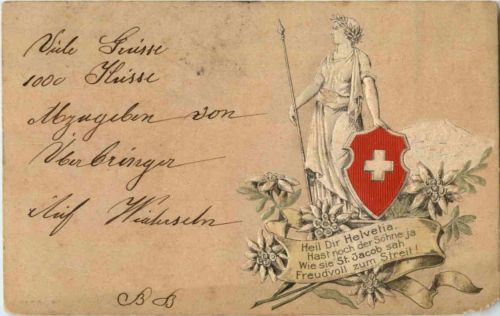 Viele Grüsse
1000 Küsse
Abzugeben von
Überbringer
Auf Wiedersehn
B B
Heil Dir Helvetia.
Hast noch der Söhne ja
Wie sie St. Jacob sah
Freudvoll zum Streit!